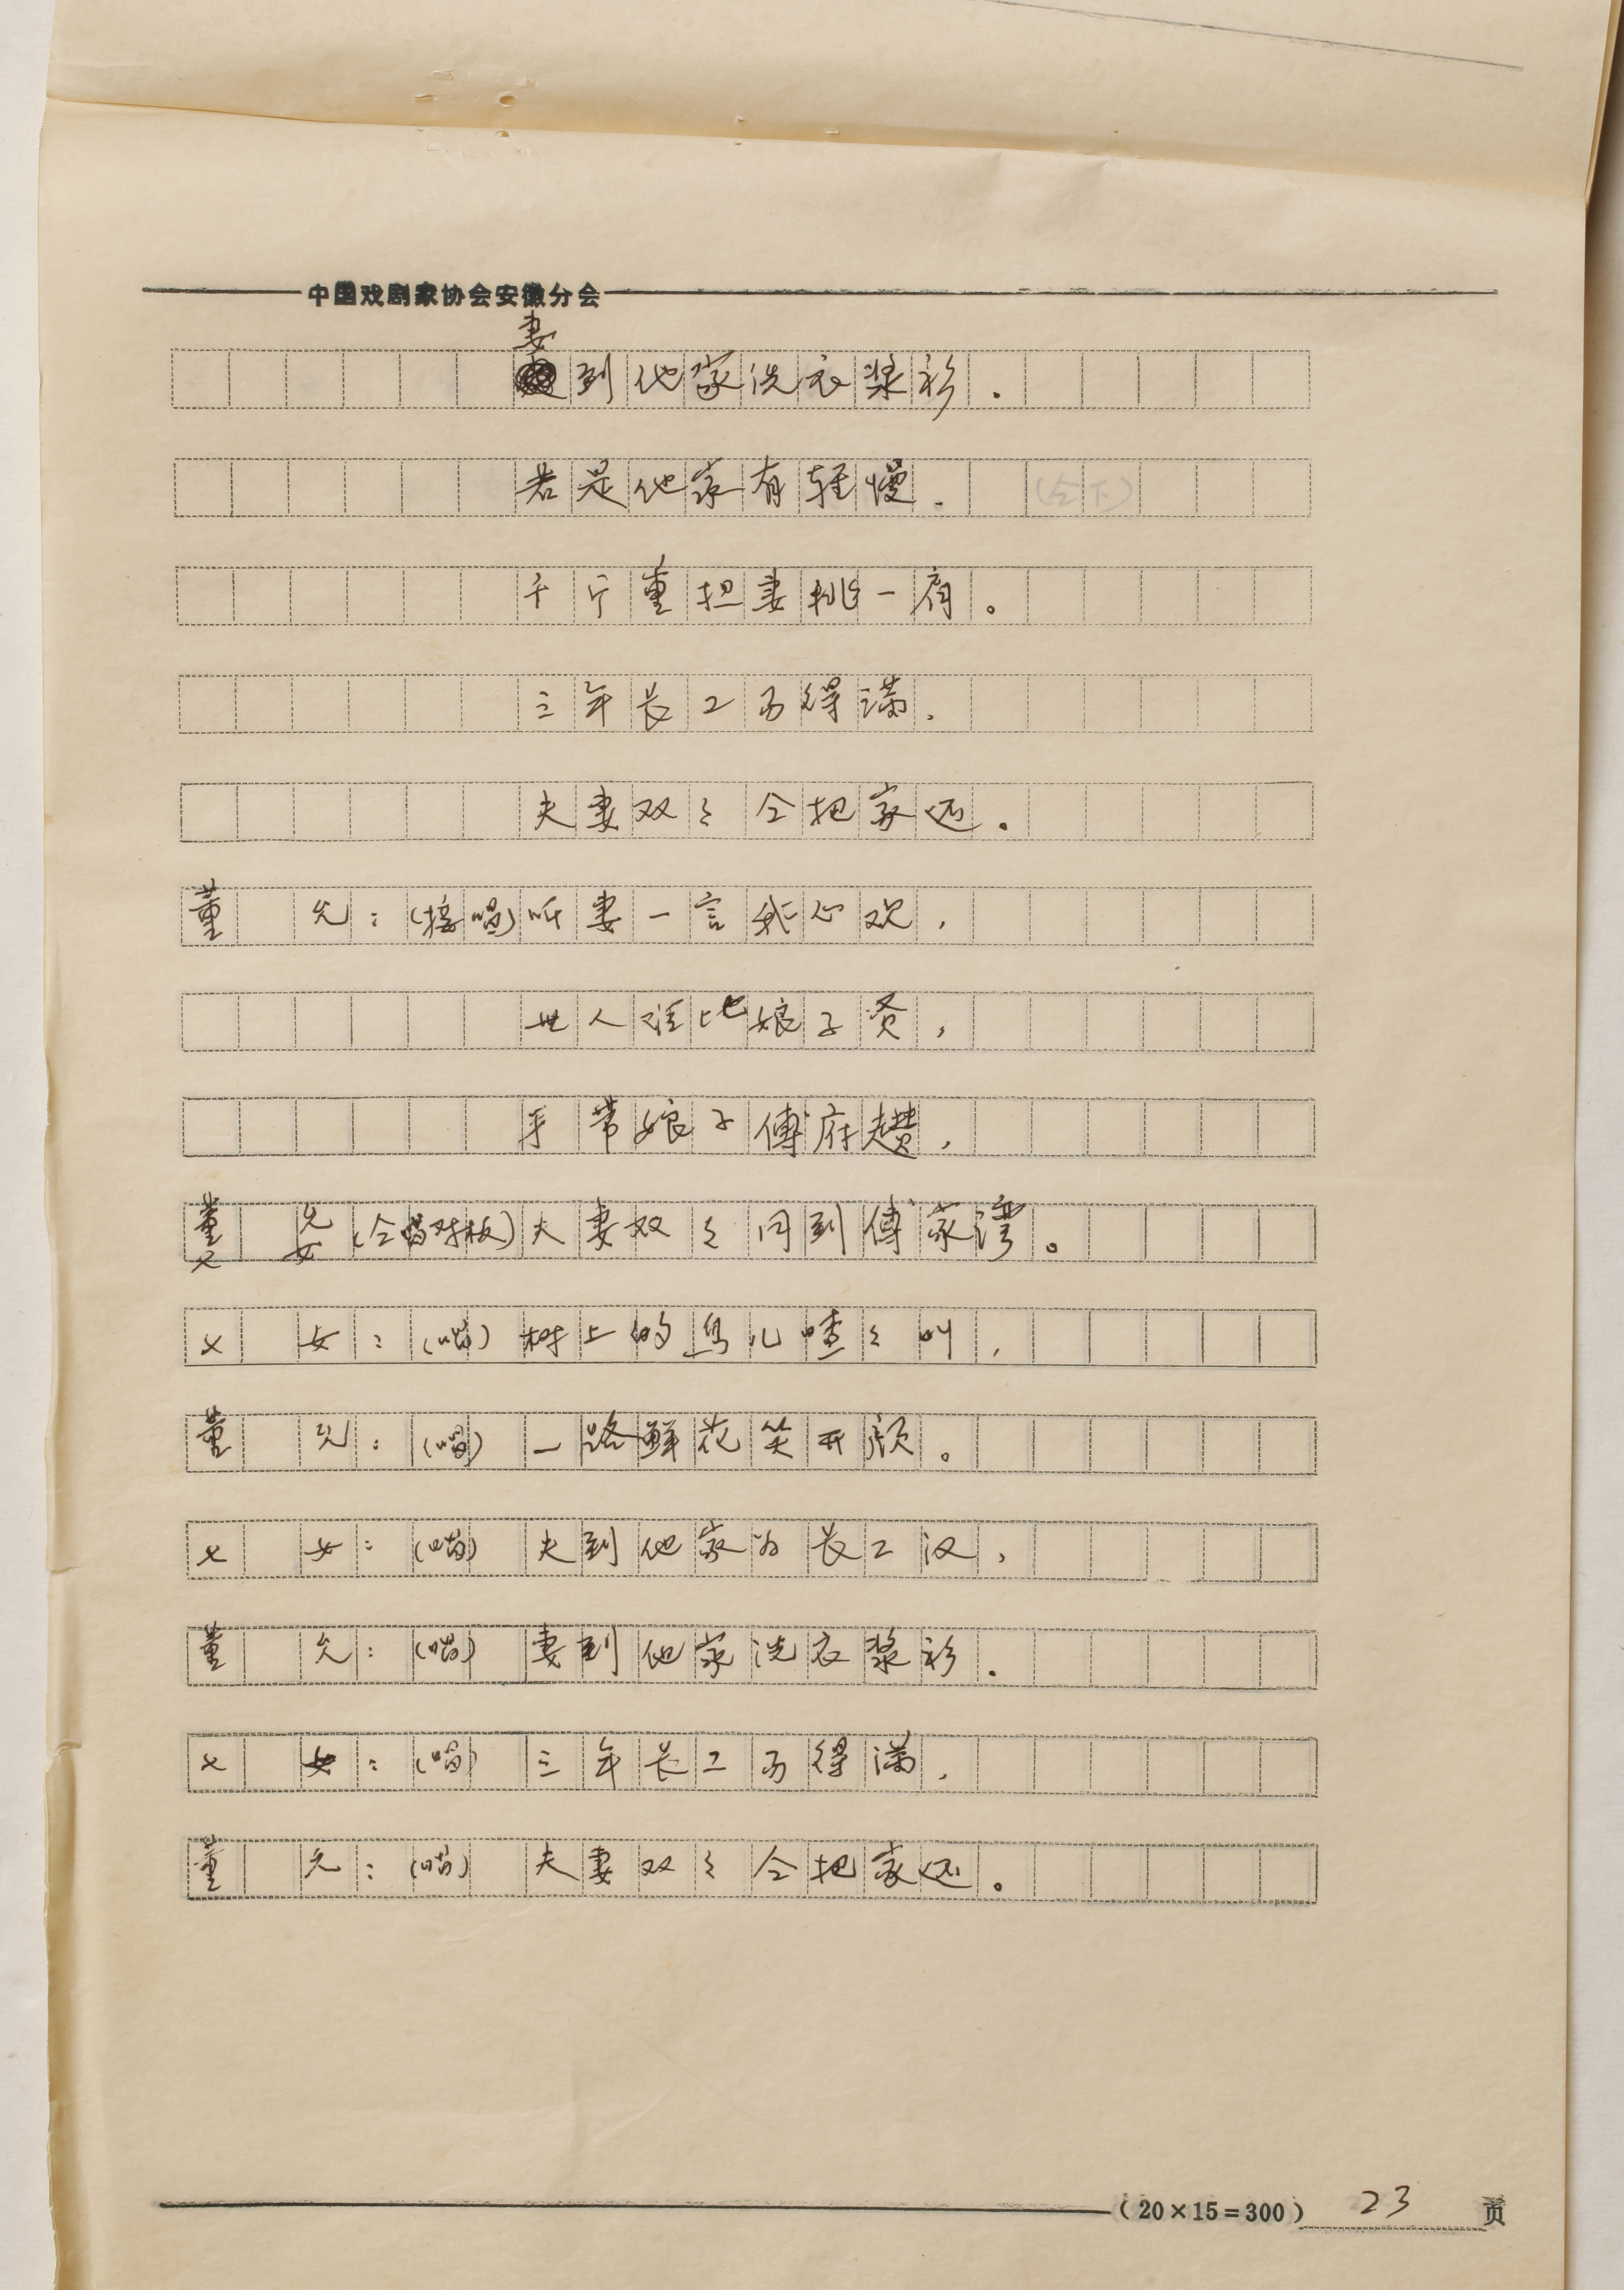 中国戏剧家协会安徽分会
妻
到他家洗衣浆衫.
若是他家有轻慢. (仝下)
千斤重担妻挑一肩。
三年长工历得满.
夫妻双々仝把家还.
董 允:(接唱)听妻一言我心欢,
世人谁比娘子贤,
手带娘子傅府趱,
董 允
七 女(仝唱对板)夫妻双々同到傅家湾。
七 女:(唱)树上的鸟儿喳々叫,
董 允:(唱)一路鲜花笑开颜。
七 女:(唱)夫到他家为长工汉,
董 允:(唱)妻到他家洗衣浆衫.
七 女:(唱)三年长工历得满,
董 允:(唱)夫妻双々仝把家还。
(20×15=300) 23 页